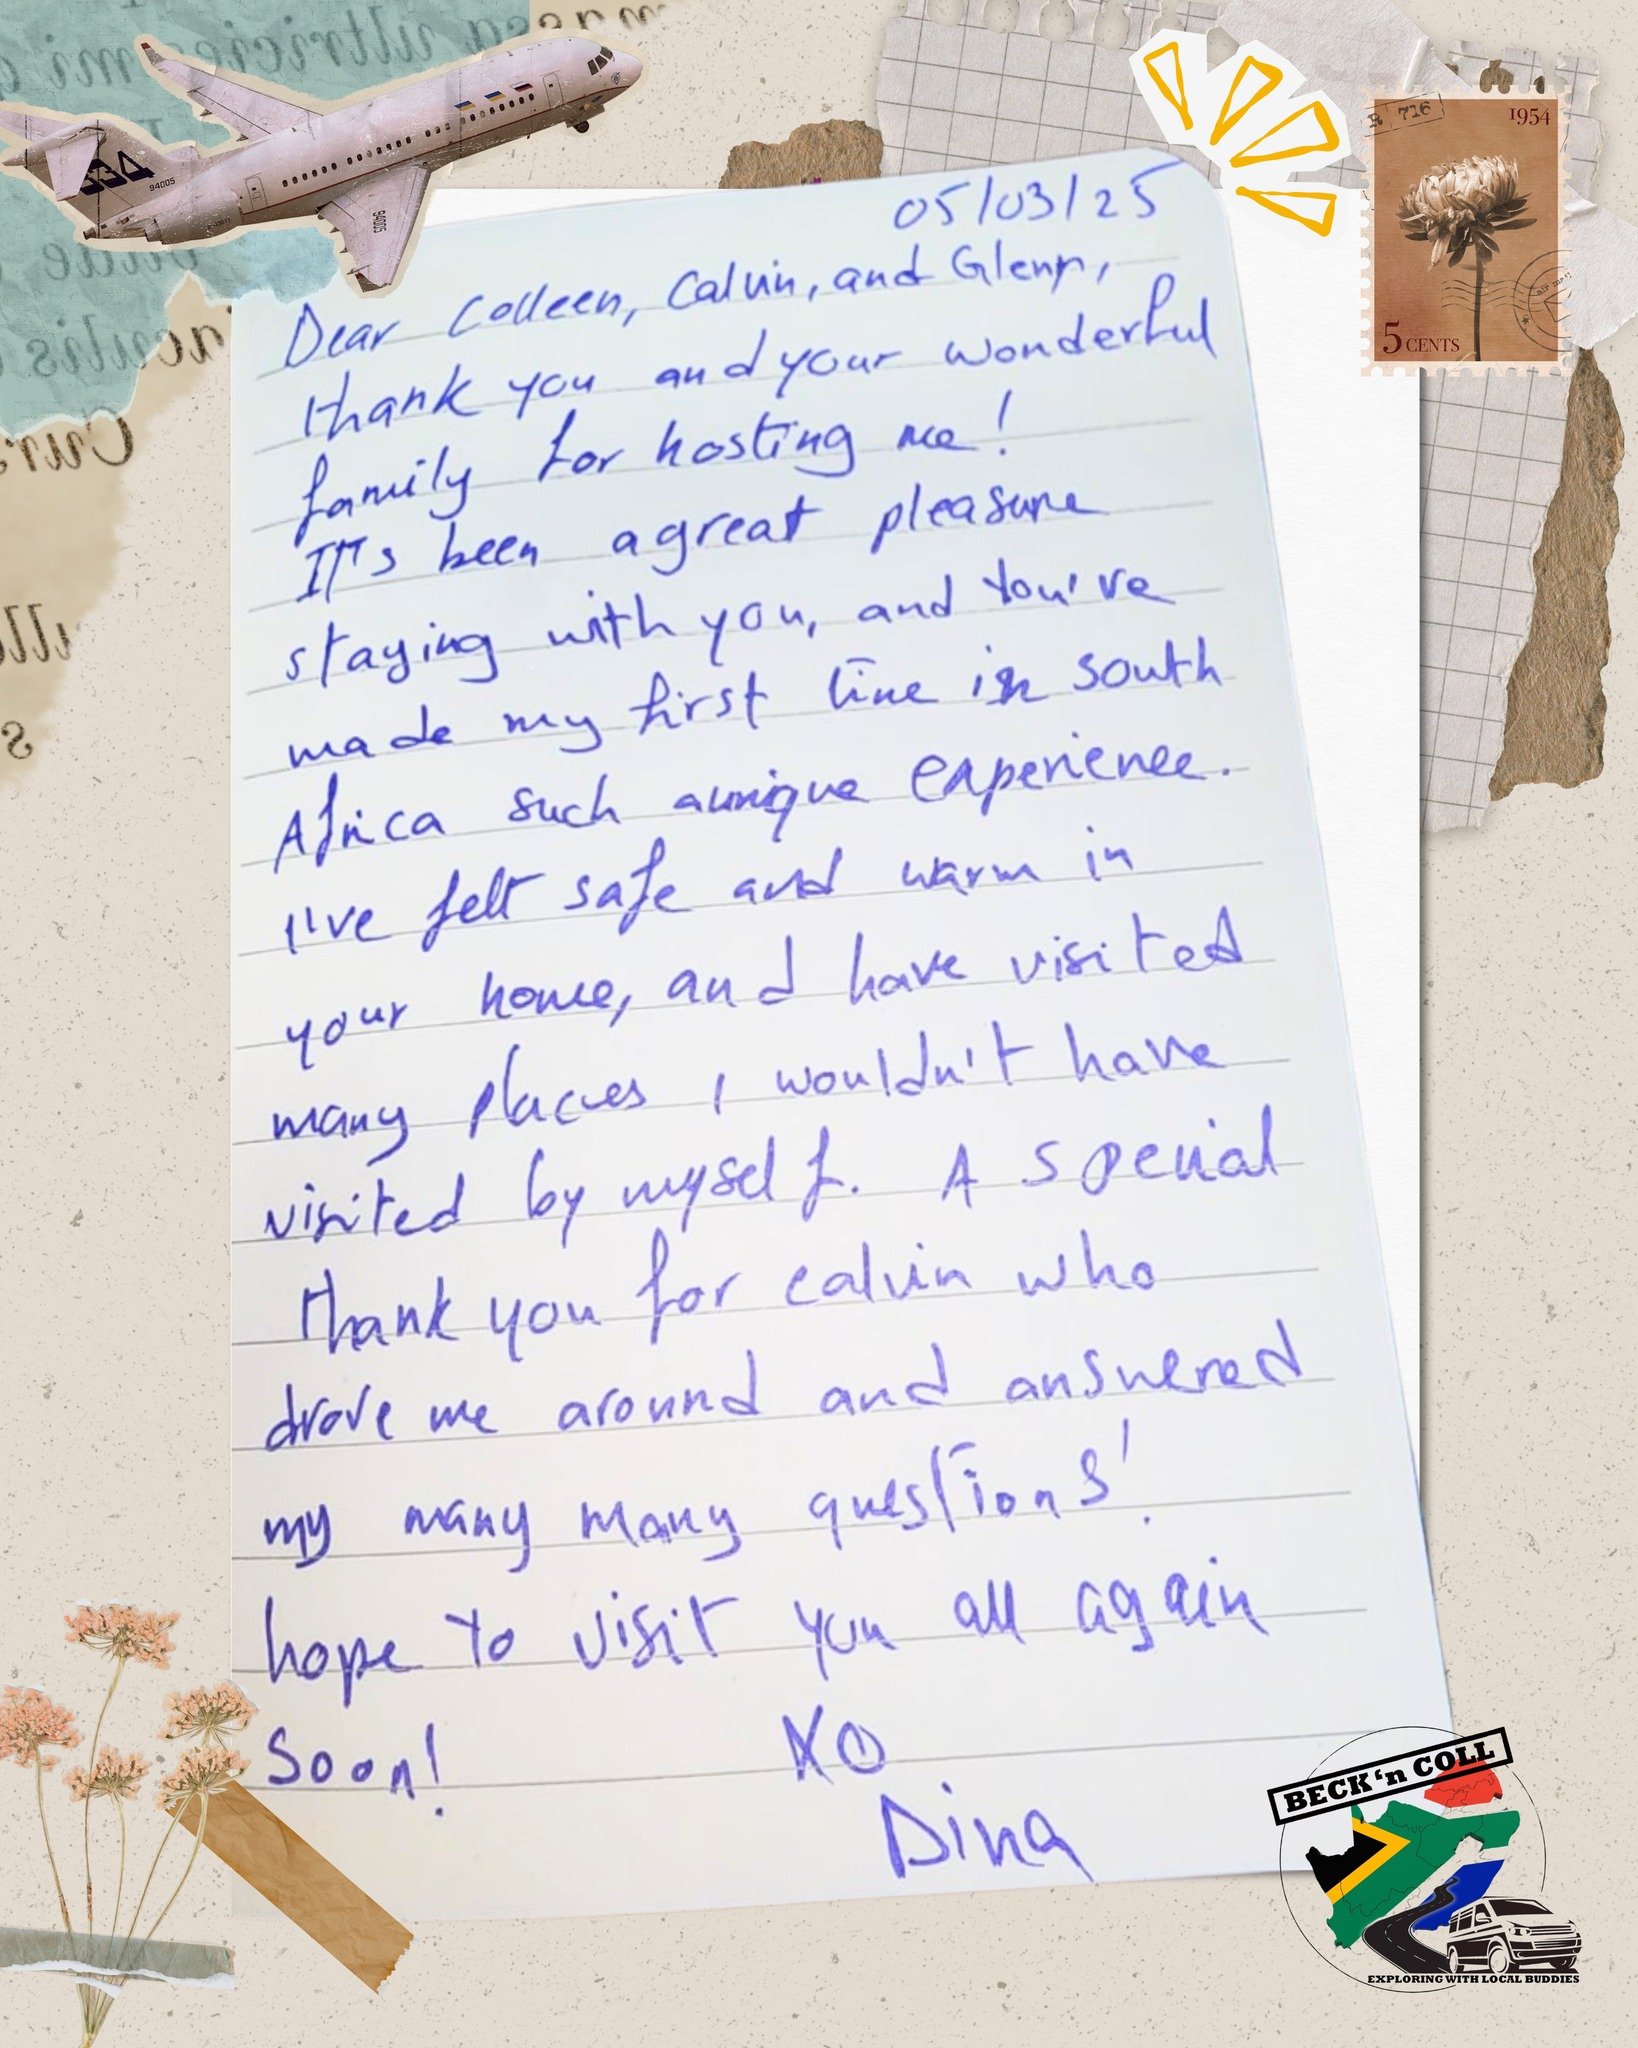 05/03/25
Dear Colleen, Calvin, and Glenn,
thank you and your wonderful
family for hosting me!
It's been a great pleasure
staying with you, and You've
made my first time in south
Africa such a unique experience.
I've felt safe and warm in
your home, and have visited
many places I wouldn't have
visited by myself. A special
thank you for calvin who
drove me around and answered
my many many questions!
hope to visit you all again
Soon!
XO
Dina
R 716
1954
5 CENTS
94005
94005
BECK 'n COLL
EXPLORING WITH LOCAL BUDDIES